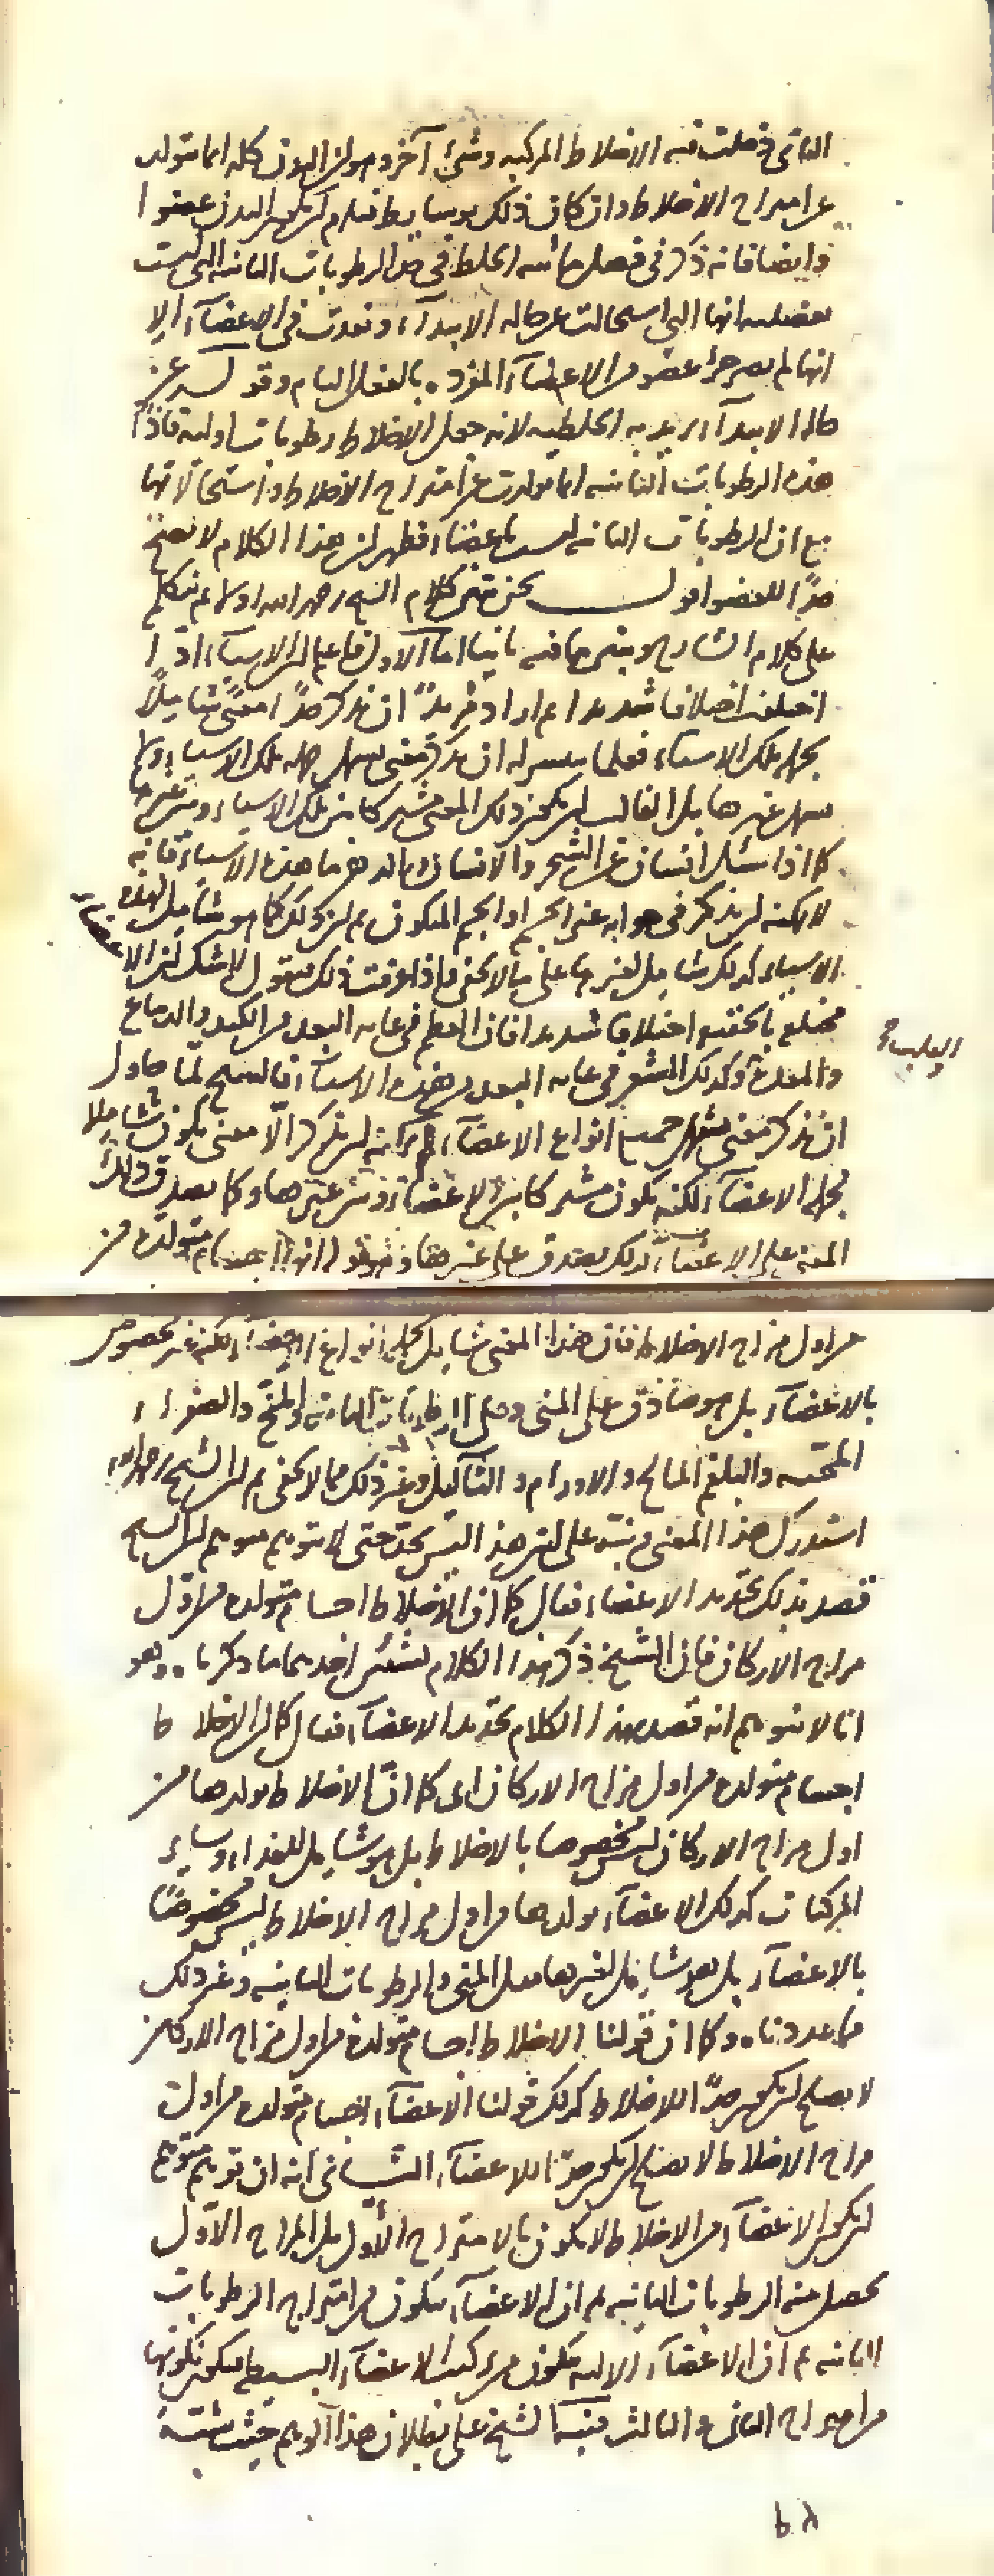 الثانى فعلت فيه الاخلاط المركبه وشئ آخر وهو ان البدن كله انما تولد
عن امتزاج الاخلاط وان كان ذلك بوسايط فيلزم ان يكون البدن عضوا
وايضا فانه ذكر فى فصل مائيه الخلط فى حد الرطوبات الثانيه التى ليست
بفضليه انها التى استحالت عن حاله الابتدآء ونفذت فى الاعضآء الا
انها لم يصر جزء عضو من الاعضآء المفرده بالفعل التام وقوله عن
حاله الابتدآء يريد به الخلطيه لانه جعل الاخلاط رطوبات اوليه فاذًا
هذه الرطوبات الثانيه انما تولدت عن امتزاج الاخلاط واستحالاتها
مع ان الرطوبات الثانيه ليست باعضآء فظهر ان هذا الكلام لا يصح
حدًا للعضو اقول نحن نتمم كلام الشيخ رحمه الله اولا ثم نتكلم
على كلام الشارح ونبين ما فيه ثانيا اما الاول فاعلم ان الاشيآء اذا
اختلفت اختلافا شديدا ثم اراد مريدٌ ان يذكر حدًا او معنًى شاملًا
لجمله تلك الاشيآء فقلما يتيسر له ان يذكر معنى يشمل جمله تلك الاشيآء ولا
يشمل غيرها بل الغالب ان يكون ذلك المعنى مشتركا بين تلك الاشيآء وبين غيرها
كما اذا سئل انسان عن الشجر والانسان والدهن ما هذه الاشيآء فانه
لا يمكنه ان يذكر فى جوابه غير الجسم او الجسم المتكون ثم ان ذلك كما هو شامل لهذه
الاشيآء كذلك شامل لغيرها على ما لا يخفى واذا عرفت ذلك فنقول لا شك ان الاعضآء
مختلفه بالحقيقه اختلافا شديدا فان العظم فى غايه البعد من الكبد والدماغ
والقلب
والمعده وكذلك الشعر فى غايه البعد من هذه الاشيآء فالشيخ لما حاول
ان يذكر معنى يشمل جميع انواع الاعضآء لم يمكنه ان يذكر الا معنى يكون شاملا
لجمله الاعضآء لكنه يكون مشتركا بين الاعضآء وبين غيرها وكما يصدق ذلك
المعنى على الاعضآء كذلك يصدق على غيرها وهو قوله انها اجسام متولده من
من اول مزاج الاخلاط فان هذا المعنى شامل لجمله انواع الاعضآء لكنه غير مخصوص
بالاعضآء بل هو صادق على المنى وعلى الرطوبات الثانيه والمخ والصفرآء
المحيه والبلغم المالح والاورام والثآليل وغير ذلك مما لا يخفى ثم ان الشيخ رحمه الله
استدرك هذا المعنى ونبه على ان هذا ليس بحد حتى لا يتوهم متوهم ان الشيخ
قصد بذلك تحديد الاعضاء فقال كما ان الاخلاط اجسام متولده من اول
مزاج الاركان فان الشيخ ذكر هذا الكلام لشيئين احدهما ما ذكرناه وهو
انا لا نتوهم انه قصد بهذا الكلام تحديد الاعضآء فقال كما ان الاخلاط
اجسام متولده من اول مزاج الاركان اى كما ان الاخلاط تولدها من
اول مزاج الاركان ليس مخصوصا بالاخلاط بل هو شامل للغذآء وساير
المركبات كذلك الاعضآء تولدها من اول مزاج الاخلاط ليس مخصوصًا
بالاعضآء بل هو شامل لغيرها مثل المنى والرطوبات الثانيه وغير ذلك
مما عددناه وكما ان قولنا الاخلاط اجسام متولده من اول مزاج الاركان
لا يصلح ان يكون حدًا للاخلاط كذلك قولنا الاعضآء اجسام متولده من اول
مزاج الاخلاط لا يصلح ان يكون حدًا للاعضآء الثانى انه ان توهم متوهم
ان يكون الاعضآء من الاخلاط لا يكون بالامتزاج الأول بل المزاج الاول
يحصل منه الرطوبات الثانيه ثم ان الاعضآء يتكون من امتزاج الرطوبات
الثانيه ثم ان الاعضآء الاليه يتكون من تركيب الاعضآء البسيطه فيكون تكونها
من امتزاج الثانى والثالث فنبه الشيخ على بطلان هذا الوهم حيث شبه